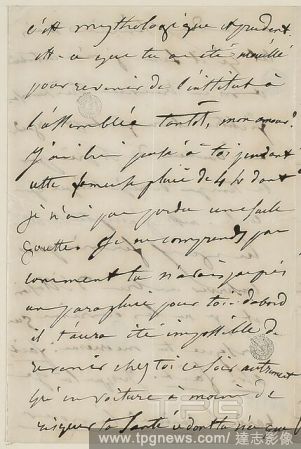 c'est mythologique et prudent
Est-ce que tu as été mouillé
pour revenir de l'institut à
l'assemblée tantôt, mon amour?
J'ai bien pensé à toi pendant
cette fameuse pluie de 4 h dont
je n'ai pas perdu une seule
goutte. Je ne comprends pas
comment tu n'avais pas pris
un parapluie pour toi: d'abord
il t'aura été impossible de
revenir chez toi ce soir autrement
qu'en voiture à moins de
risquer ta santé
TPG
www.tpgnews.com/ 達志影像